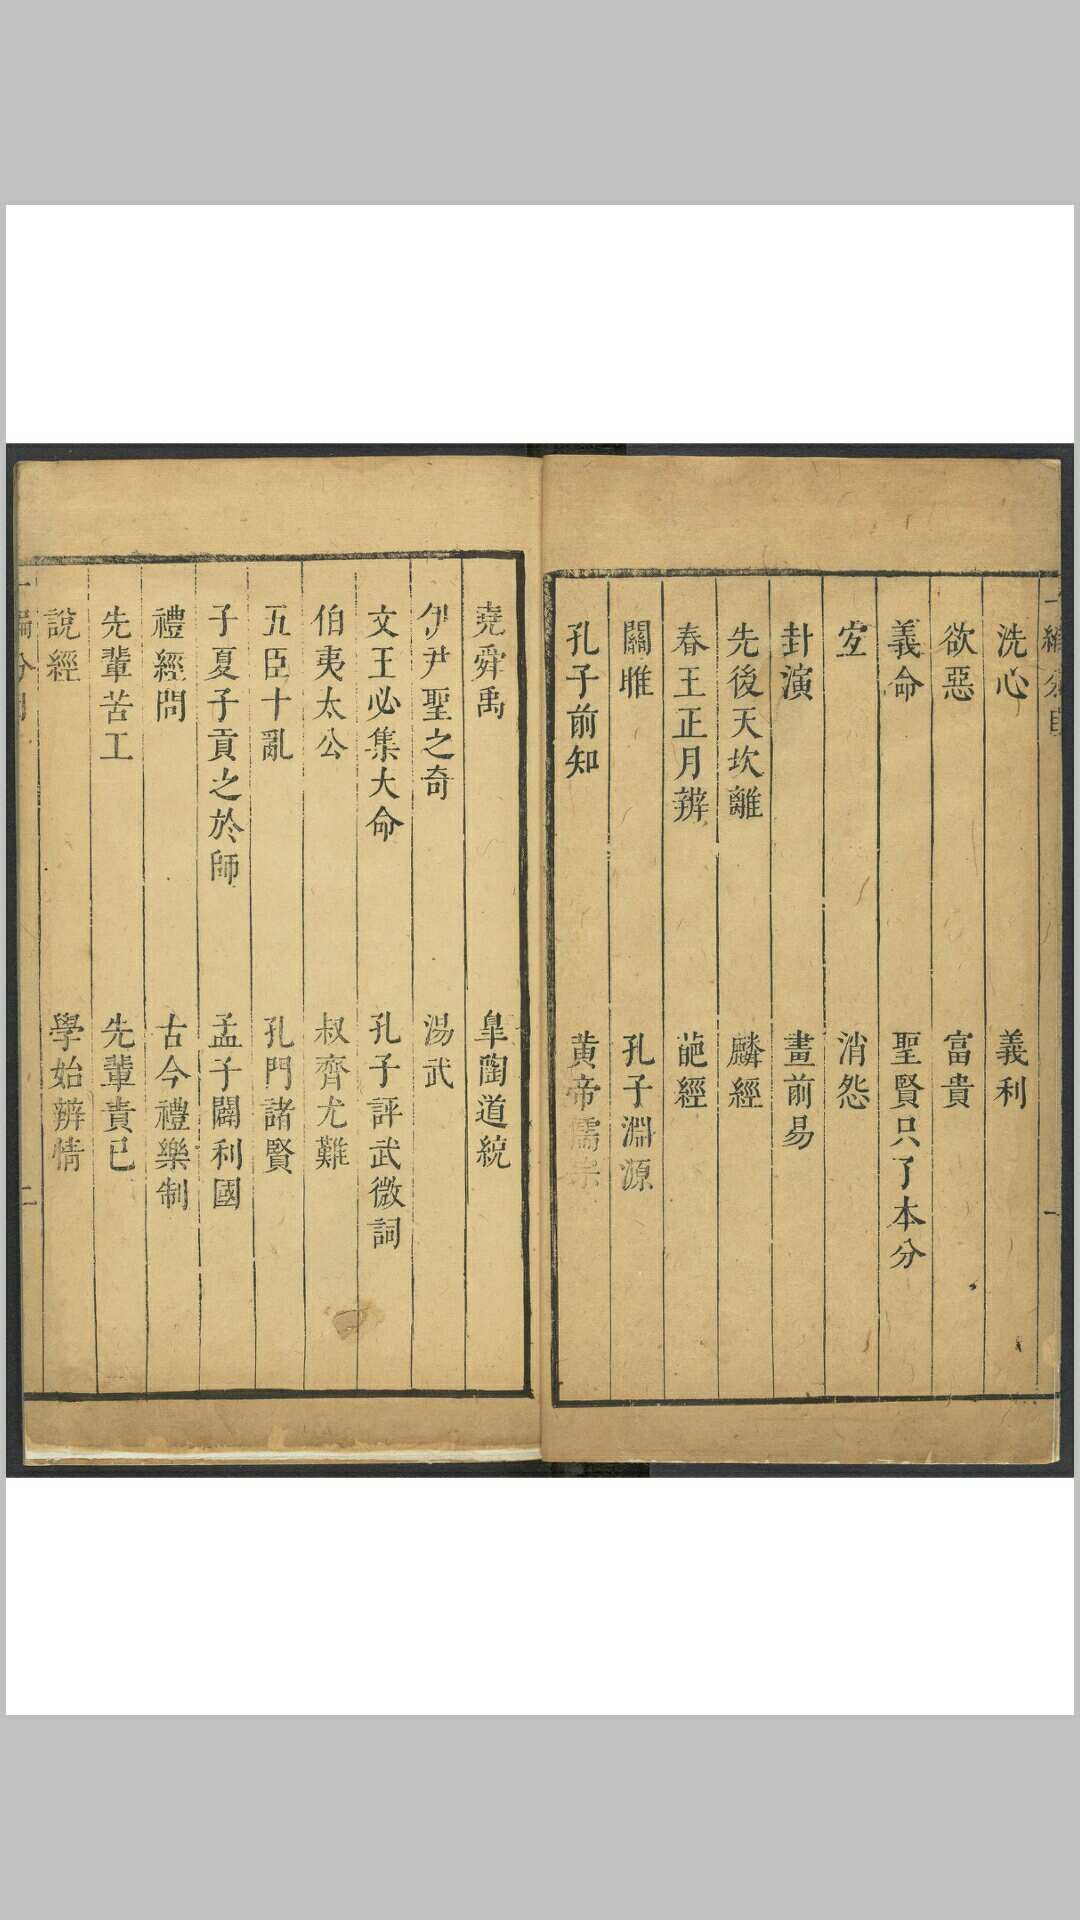 洗心 義利
欲惡 富貴
義命 聖賢只了本分
消怨
卦演 畫前易
先後天坎離 麟經
春王正月辨 葩經
關雎 孔子淵源
孔子前知 黄帝儒宗
一
堯舜禹 臯陶道統
伊尹聖之奇 湯武
文王必集大命 孔子評武微詞
伯夷太公 叔齊尤難
五臣十亂 孔門諸賢
子夏子貢之於師 孟子闢利國
禮經問 古今禮樂制
先輩苦工 先輩責已
說經 學始辨情
二